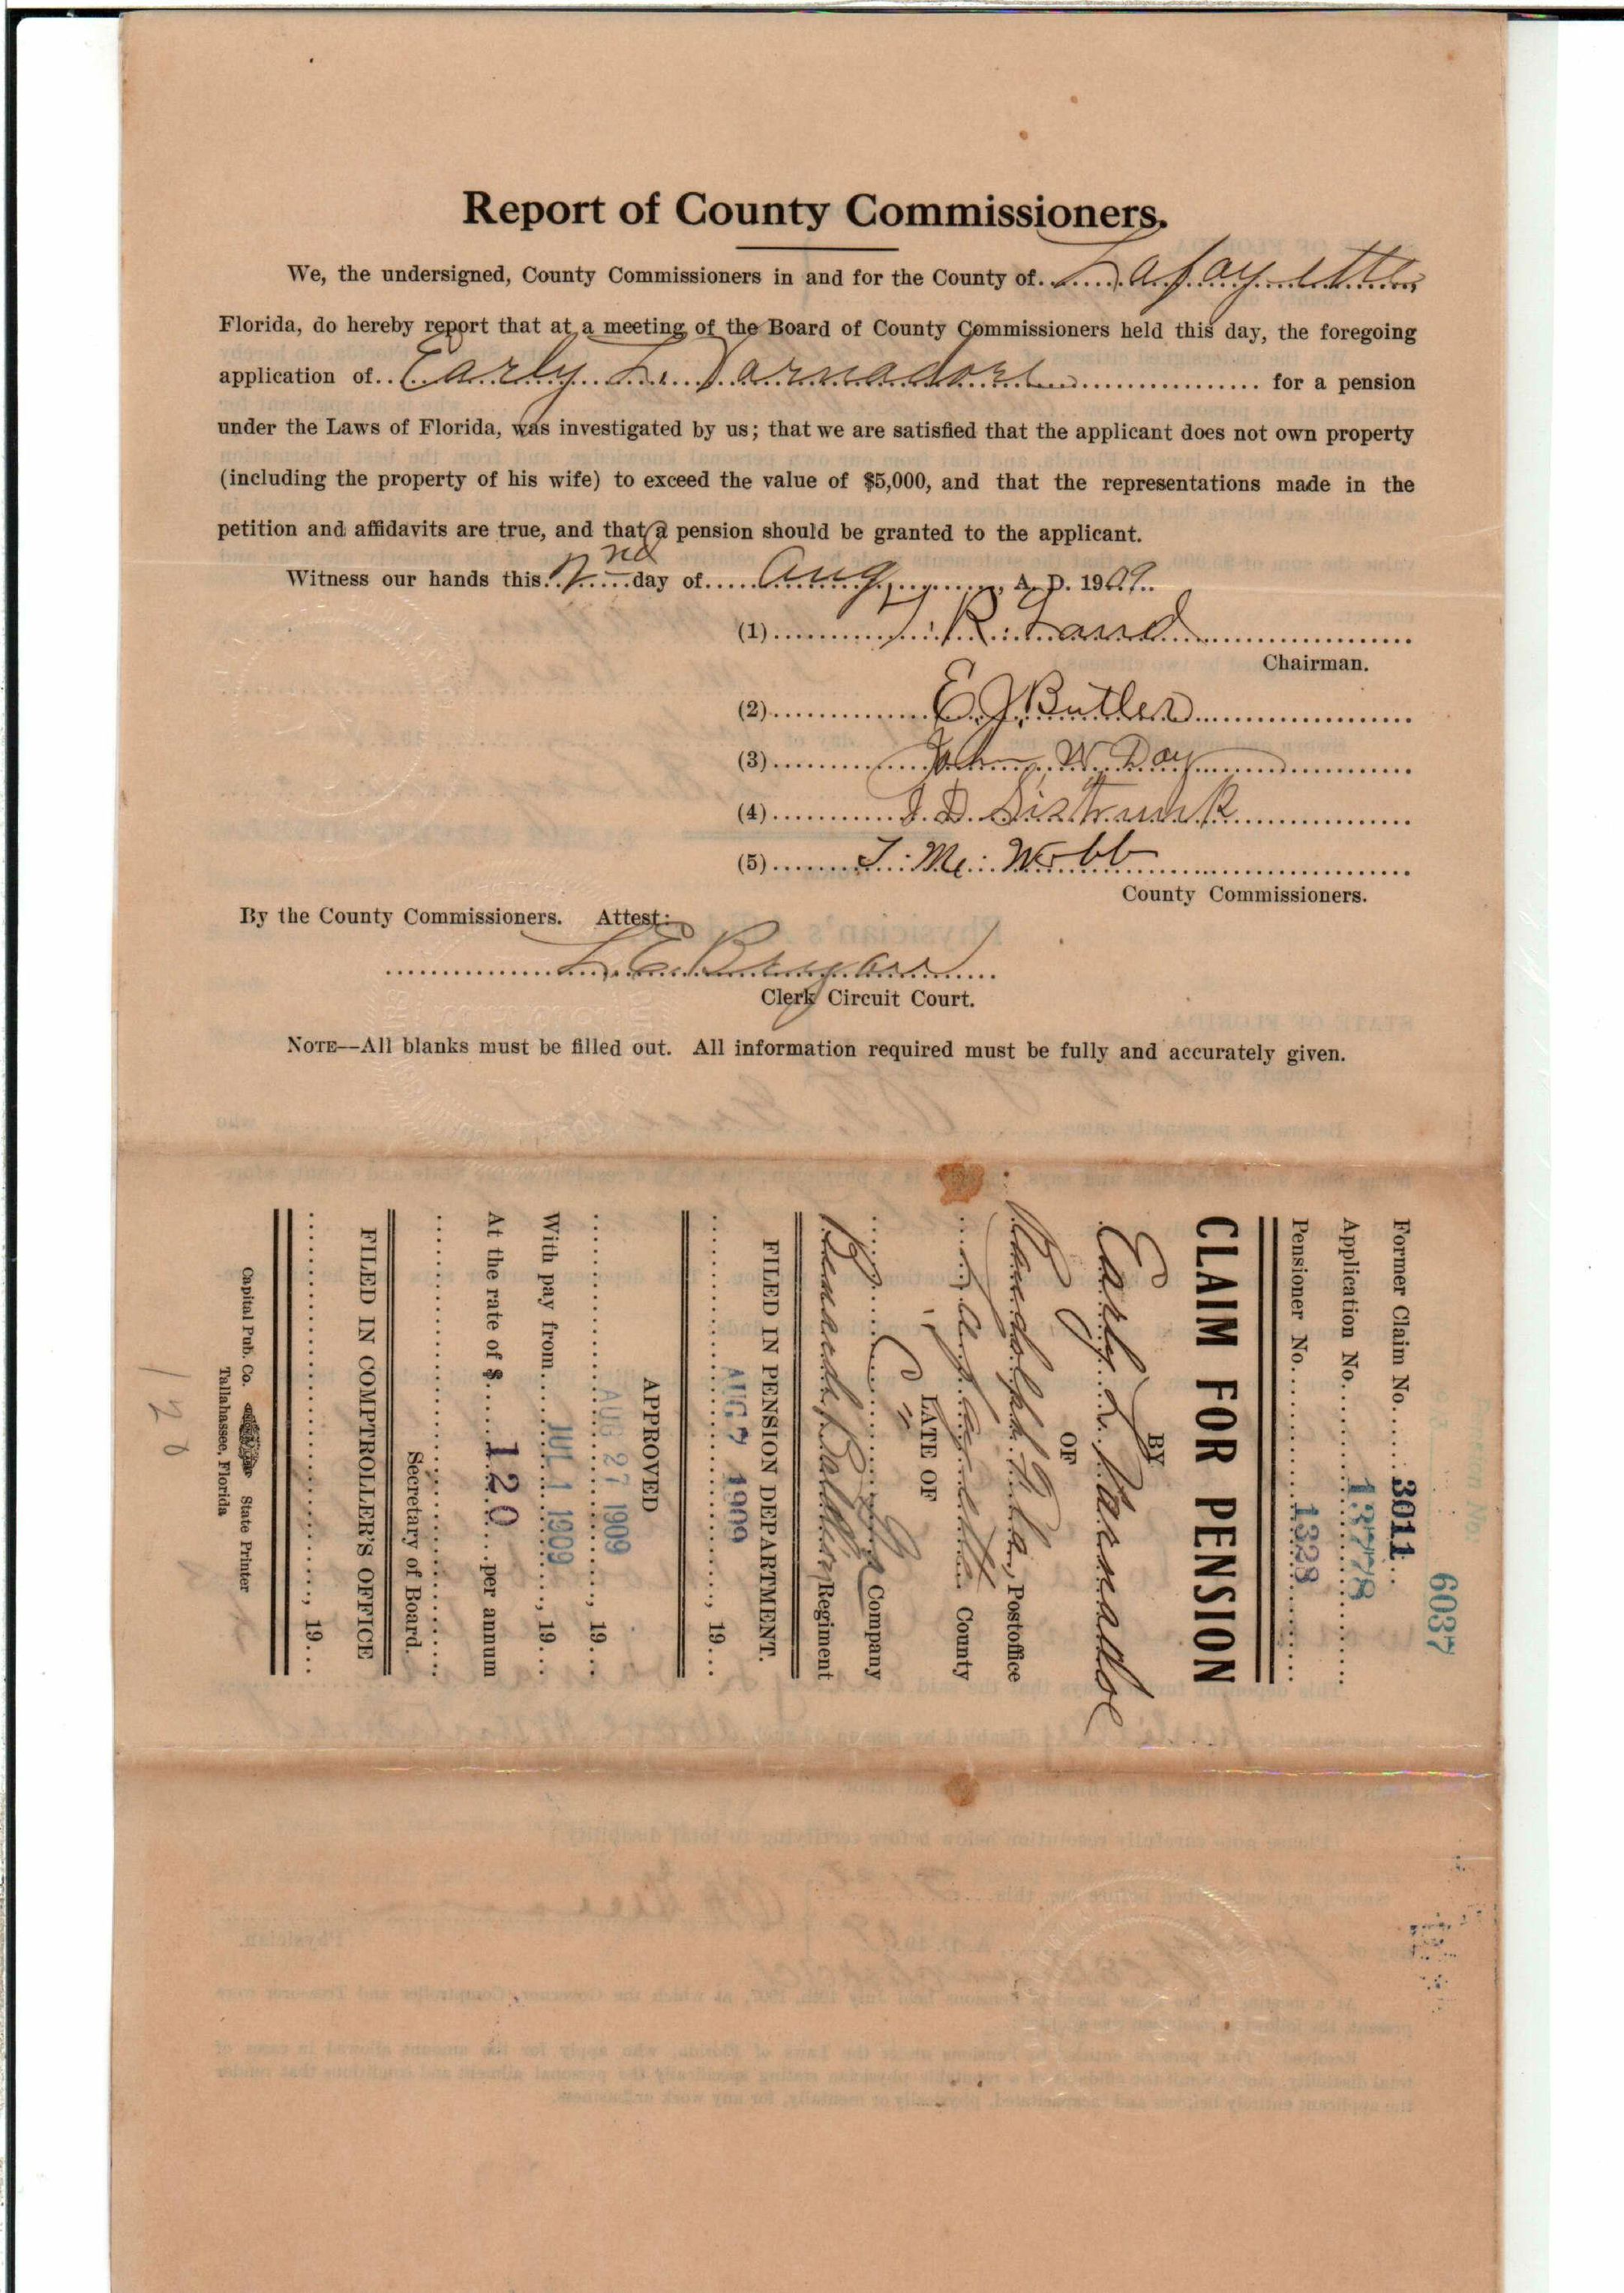 Report of County Commissioners.
We, the undersigned, County Commissioners in and for the County of Lafayette
Florida, do hereby report that at a meeting of the Board of County Commissioners held this day, the foregoing
application of Early L. Varnadore for a pension
under the Laws of Florida, was investigated by us; that we are satisfied that the applicant does not own property
(including the property of his wife) to exceed the value of $5,000, and that the representations made in the
petition and affidavits are true, and that a pension should be granted to the applicant.
Witness our hands this 2nd day of Aug, A. D. 1909.
(1) R. Land
Chairman.
(2) E J Butler
(3) John W. Day
(4) J. D. Sistrunk
(5) T. M. Webb
County Commissioners.
By the County Commissioners. Attest:
Clerk Circuit Court.
NOTE—All blanks must be filled out. All information required must be fully and accurately given.
6037
Former Claim No. 3011
Application No. 13778
Pensioner No. 1328
CLAIM FOR PENSION
BY
Early L Varnadoe
OF
Postoffice
Lafayette County
LATE OF
"C" Company
Regiment
FILED IN PENSION DEPARTMENT.
AUG 7 1909, 19
APPROVED
AUG 27 1909, 19
With pay from JUL 1 1909, 19
At the rate of $ 120 per annum
Secretary of Board.
FILED IN COMPTROLLER'S OFFICE
, 19
Capital Pub. Co. State Printer
Tallahassee, Florida
120